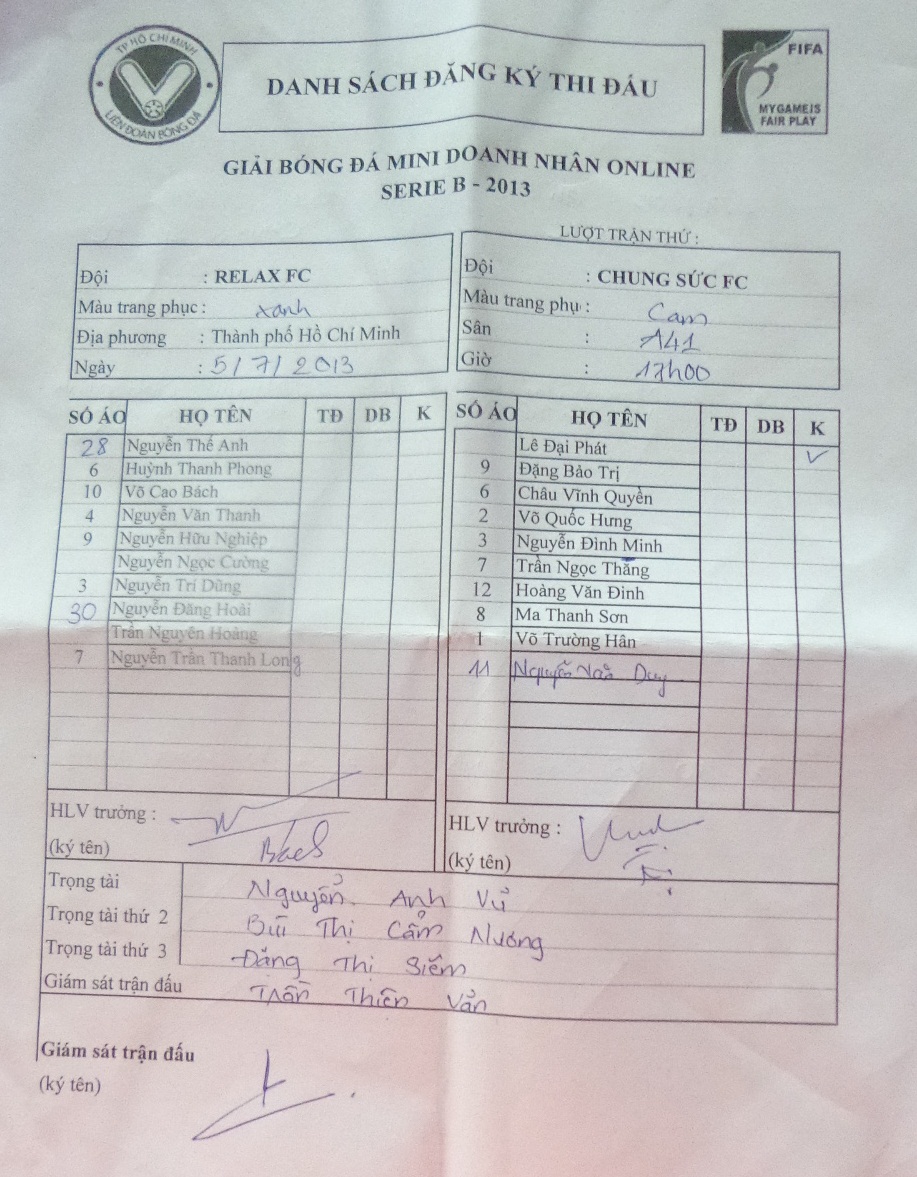 TP HỒ CHÍ MINH
LIÊN ĐOÀN BÓNG ĐÁ
DANH SÁCH ĐĂNG KÝ THI ĐẤU
FIFA
MY GAME IS
FAIR PLAY
GIẢI BÓNG ĐÁ MINI DOANH NHÂN ONLINE
SERIE B - 2013
LƯỢT TRẬN THỨ :
Đội : RELAX FC
Màu trang phục : xanh
Địa phương : Thành phố Hồ Chí Minh
Ngày : 5/7/2013
Đội : CHUNG SỨC FC
Màu trang phụ : Cam
Sân : A41
Giờ : 17h00
SỐ ÁO HỌ TÊN TĐ DB K
28 Nguyễn Thế Anh
6 Huỳnh Thanh Phong
10 Võ Cao Bách
4 Nguyễn Văn Thanh
9 Nguyễn Hữu Nghiệp
Nguyễn Ngọc Cường
3 Nguyễn Trí Dũng
30 Nguyễn Đăng Hoài
Trần Nguyên Hoàng
7 Nguyễn Trần Thanh Long
SỐ ÁO HỌ TÊN TĐ DB K
Lê Đại Phát v
9 Đặng Bảo Trị
6 Châu Vĩnh Quyền
2 Võ Quốc Hưng
3 Nguyễn Đình Minh
7 Trần Ngọc Thắng
12 Hoàng Văn Đình
8 Ma Thanh Sơn
1 Võ Trường Hân
11 Nguyễn Văn Duy
HLV trưởng :
(ký tên) Bách
HLV trưởng :
(ký tên)
Trọng tài Nguyễn Anh Vũ
Trọng tài thứ 2 Bùi Thị Cẩm Nương
Trọng tài thứ 3 Đặng Thị Siếm
Giám sát trận đấu Trần Thiên Vấn
Giám sát trận đấu
(ký tên)